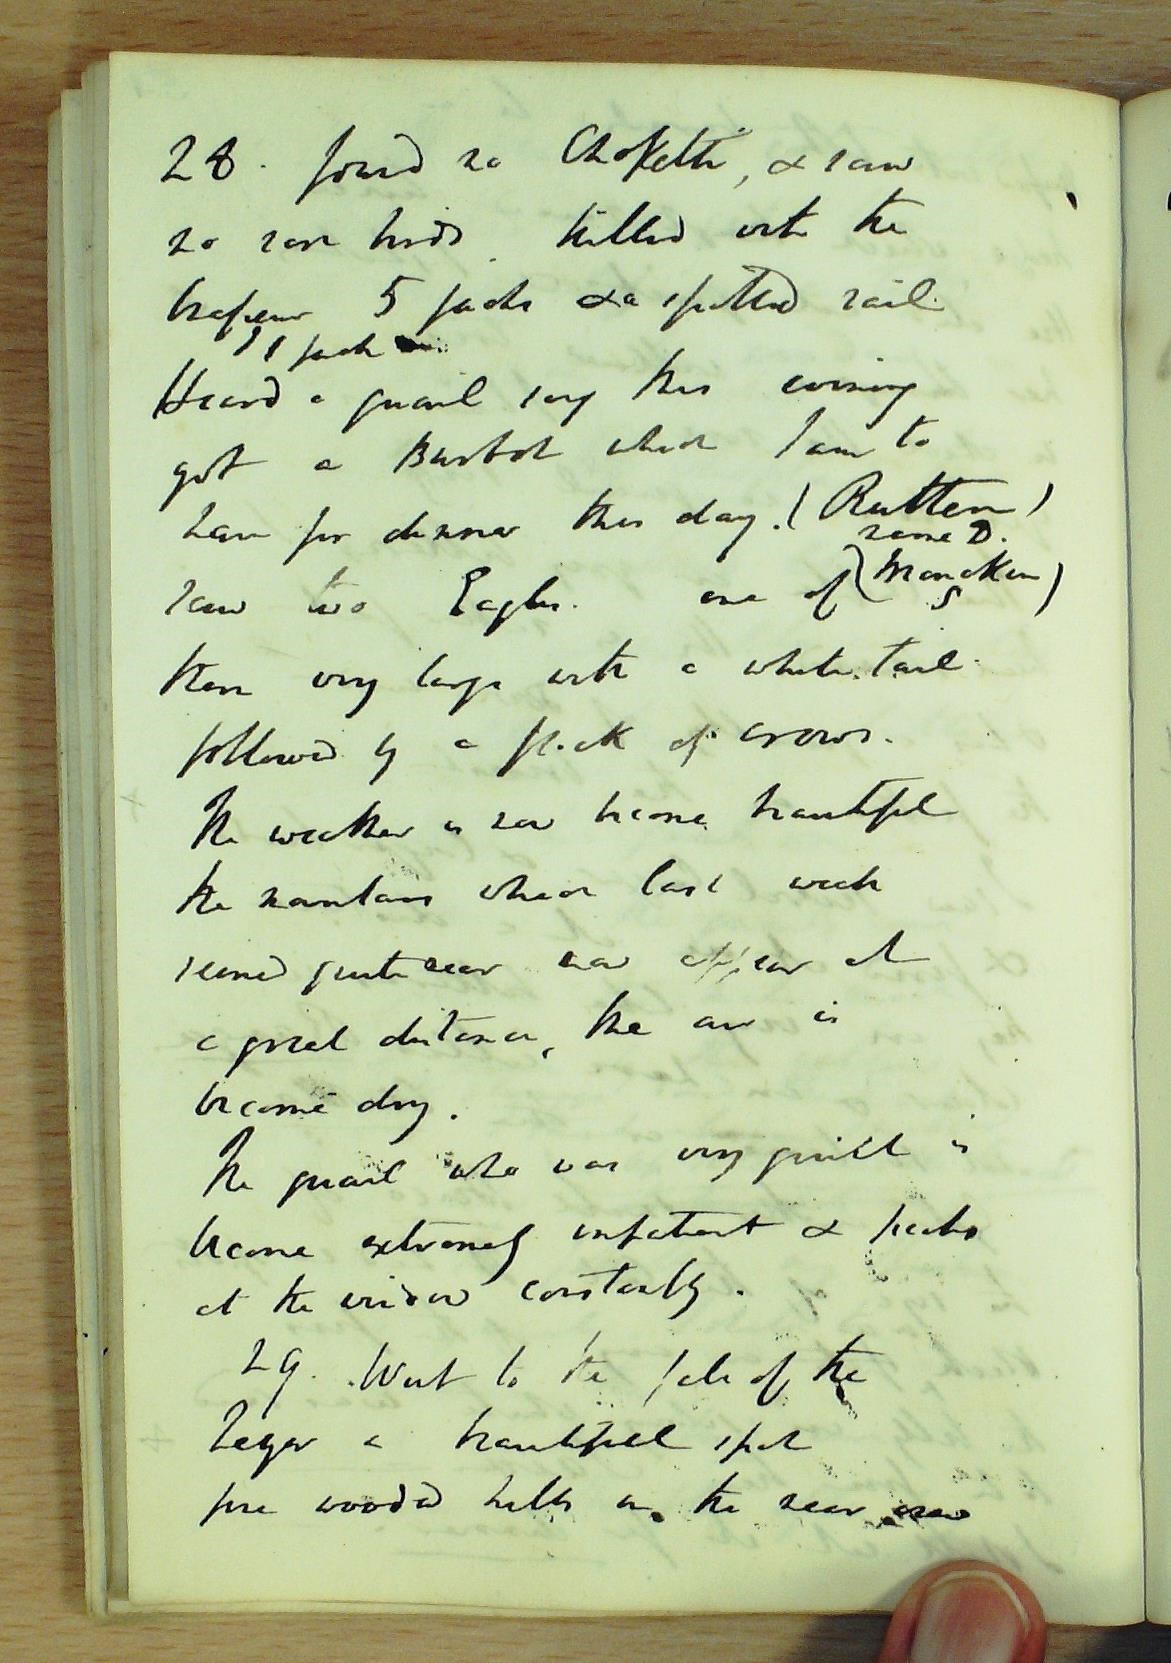 28. found no Chokette, & saw
no rare birds. killed with the
5 jacks & a spotted rail
1 jack
Heard a quail sing this evening
got a Bustard which I am to
have for dinner this day. (Rutten)
named.
saw two Eagles. one of (Monoken)
them very large with a white tail
followed by a flock of crows.
The weather is now become beautiful
the mountains which last week
seemed quite near now appear at
a great distance, the air is
become dry.
The quail who was very quiet is
become extremely impatient & pecks
at the window constantly.
29. Went to the fale of the
Leger a beautiful spot
fine wooded hills in the near view